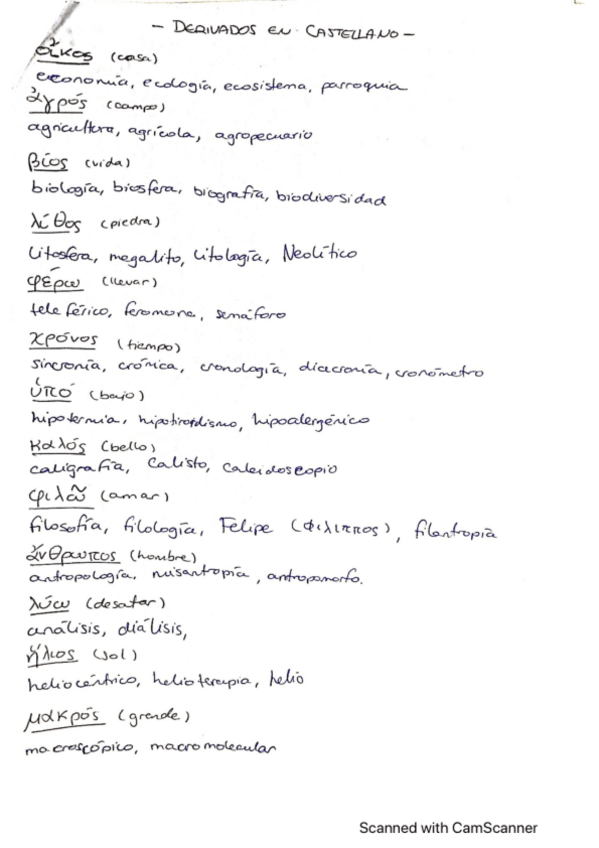 - DERIVADOS EN CASTELLANO -
οἶκος (casa)
economía, ecología, ecosistema, parroquia
ἀγρός (campo)
agricultura, agrícola, agropecuario
βίος (vida)
biología, biosfera, biografía, biodiversidad
λίθος (piedra)
Litosfera, megalito, Litología, Neolítico
φέρω (llevar)
teleférico, feromona, semáforo
χρόνος (tiempo)
sincronía, crónica, cronología, diacronía, cronómetro
ὑπό (bajo)
hipotermia, hipotiroidismo, hipoalergénico
καλός (bello)
caligrafía, Calisto, caleidoscopio
φιλῶ (amar)
filosofía, filología, Felipe (Φιλιππος), filantropía
ἄνθρωπος (hombre)
antropología, misantropía, antropomorfo.
λύω (desatar)
análisis, diálisis,
ἥλιος (sol)
heliocéntrico, helioterapia, helio
μακρός (grande)
macroscópico, macromolecular
Scanned with CamScanner